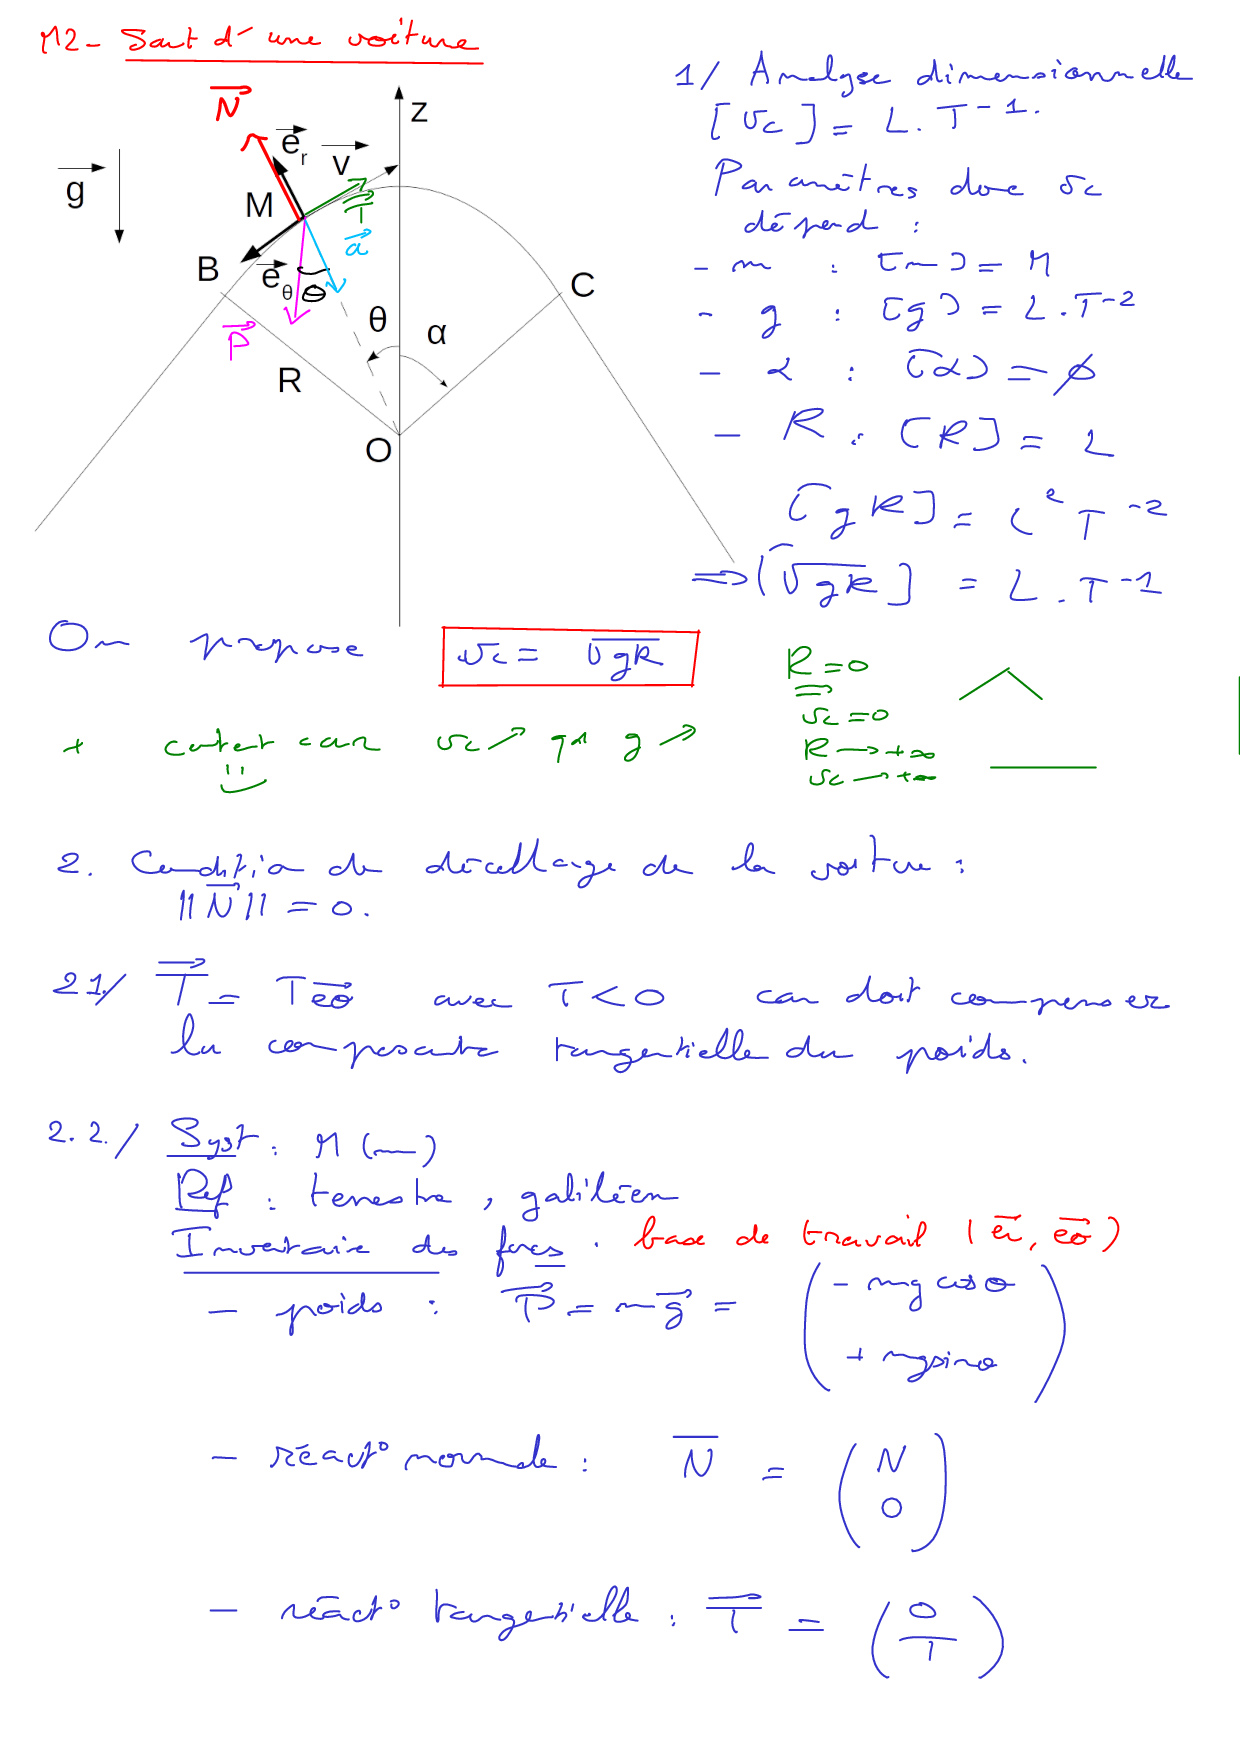 M2- Saut d'une voiture
N
e_r
v
z
g
M
T
a
B
e_θ
θ
C
P
θ
α
R
O
1/ Analyse dimensionnelle
[vc] = L.T⁻¹.
Paramètres donc vc
dépend :
- m : [m] = M
- g : [g] = L.T⁻²
- α : [α] = ∅
- R : [R] = L
[gR] = L² T⁻²
⇒ [√gR] = L.T⁻¹
On propose vc = √gR
R=0
⇒
vc=0
R → +∞
vc → +∞
+ cohérent car vc ↗ qd g ↗
2. Condition de décollage de la voiture :
||N|| = 0.
21/ T = T eθ avec T < 0 car doit compenser
la composante tangentielle du poids.
2.2./ Syst : M (m)
Ref : terrestre, galiléen
Inventaire des forces. base de travail (er, eθ)
- poids : P = mg = (- mg cosθ
+ mg sinθ)
- réact° normale : N = (N
0)
- réact° tangentielle : T = (0
T)